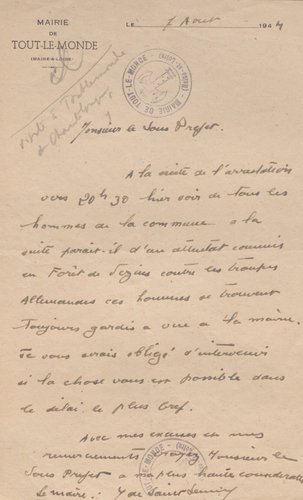 MAIRIE
DE
TOUT-LE-MONDE
(MAINE-&-LOIRE)
LE 7 Aout 1944
MAIRIE DE TOUT-LE-MONDE (MAINE-&-LOIRE)
Monsieur le Sous Prefet.
A la suite de l'arrestation
vers 20h 30 hier soir de tous les
hommes de la commune a la
suite parait-il d'un attentat commis
en Forêt de Vezins contre les troupes
Allemandes ces hommes se trouvent
toujours gardés a vue a la mairie.
Je vous serais obligé d'intervenir
si la chose vous est possible dans
le délai le plus bref.
Avec mes excuses et mes
remerciements Monsieur le
Sous Prefet a ma plus haute consideration
Le maire : Y de Saint